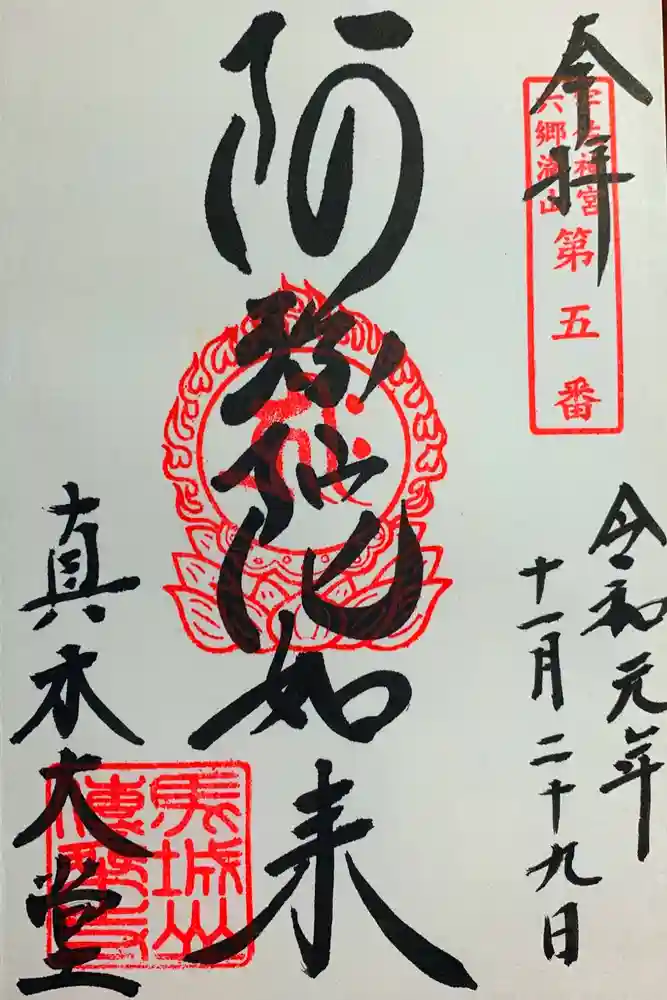 奉拝
宇佐神宮
六郷満山
第五番
令和元年
十一月二十九日
阿弥陀如来
真木大堂
馬城山
傳乗寺